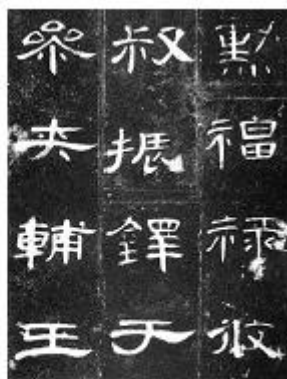 勳福祿攸
叔振鐸于
參夾輔王